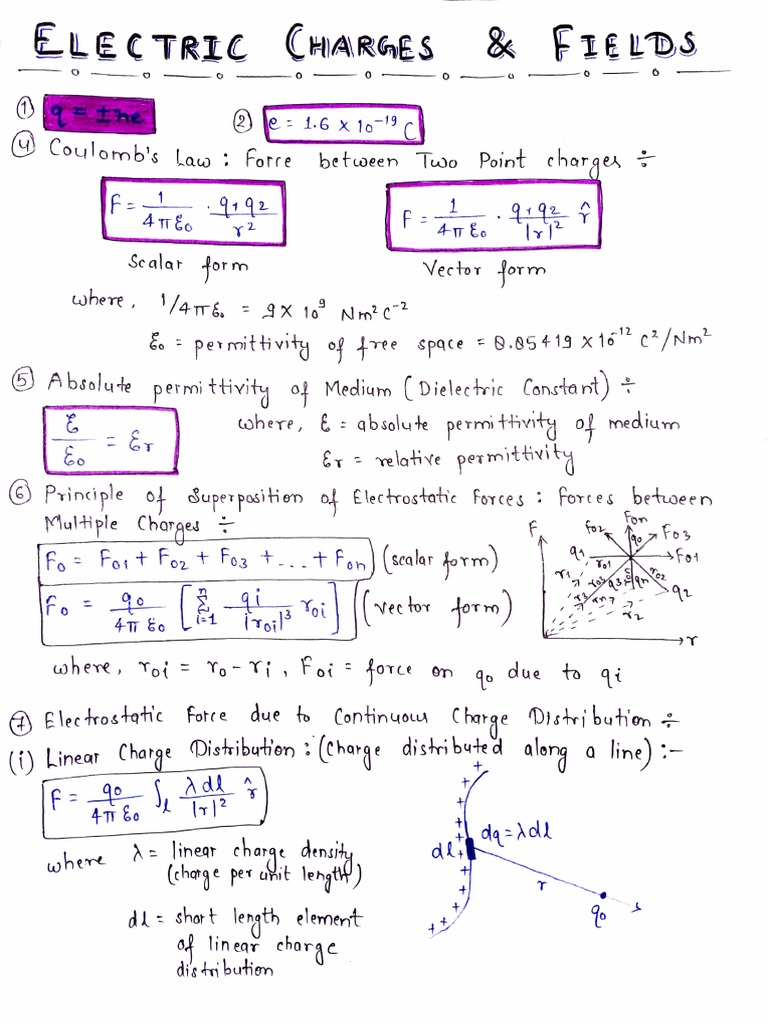 ELECTRIC CHARGES & FIELDS
① q = ±ne
② e = 1.6 × 10⁻¹⁹ C
④ Coulomb's Law : Force between Two Point charges ÷
F = 1/4πε₀ · q₁q₂/r²
F = 1/4πε₀ · q₁q₂/|r|² r̂
Scalar form
Vector form
where, 1/4πε₀ = 9 × 10⁹ Nm²C⁻²
ε₀ = permittivity of free space = 8.85419 × 10⁻¹² C²/Nm²
⑤ Absolute permittivity of Medium (Dielectric Constant) ÷
ε/ε₀ = εr
where, ε = absolute permittivity of medium
εr = relative permittivity
⑥ Principle of Superposition of Electrostatic Forces : Forces between
Multiple Charges ÷
F₀ = F₀₁ + F₀₂ + F₀₃ + ... + F₀n (scalar form)
F₀ = q₀/4πε₀ [ⁿΣi=1 qi/|r₀i|³ r₀i] (vector form)
F
F₀₂
F₀n
F₀₃
q₀
F₀₁
q₁
r₀₁
r₀₂
r₁
q₃
qn
q₂
r₃
rn
r₂
r
where, r₀i = r₀ - ri , F₀i = force on q₀ due to qi
⑦ Electrostatic Force due to Continuous Charge Distribution ÷
(i) Linear Charge Distribution : (Charge distributed along a line) :-
F = q₀/4πε₀ ∫l λdl/|r|² r̂
where λ = linear charge density
(charge per unit length)
dl = short length element
of linear charge
distribution
+
+
+
+
+
+
dl
dq = λdl
+
+
+
+
+ + +
r
q₀